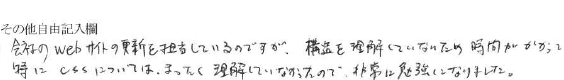 その他自由記入欄
会社のwebサイトの更新を担当しているのですが、構造を理解していないため時間がかかって
特にcssについては、まったく理解していなかったので、非常に勉強になりました。